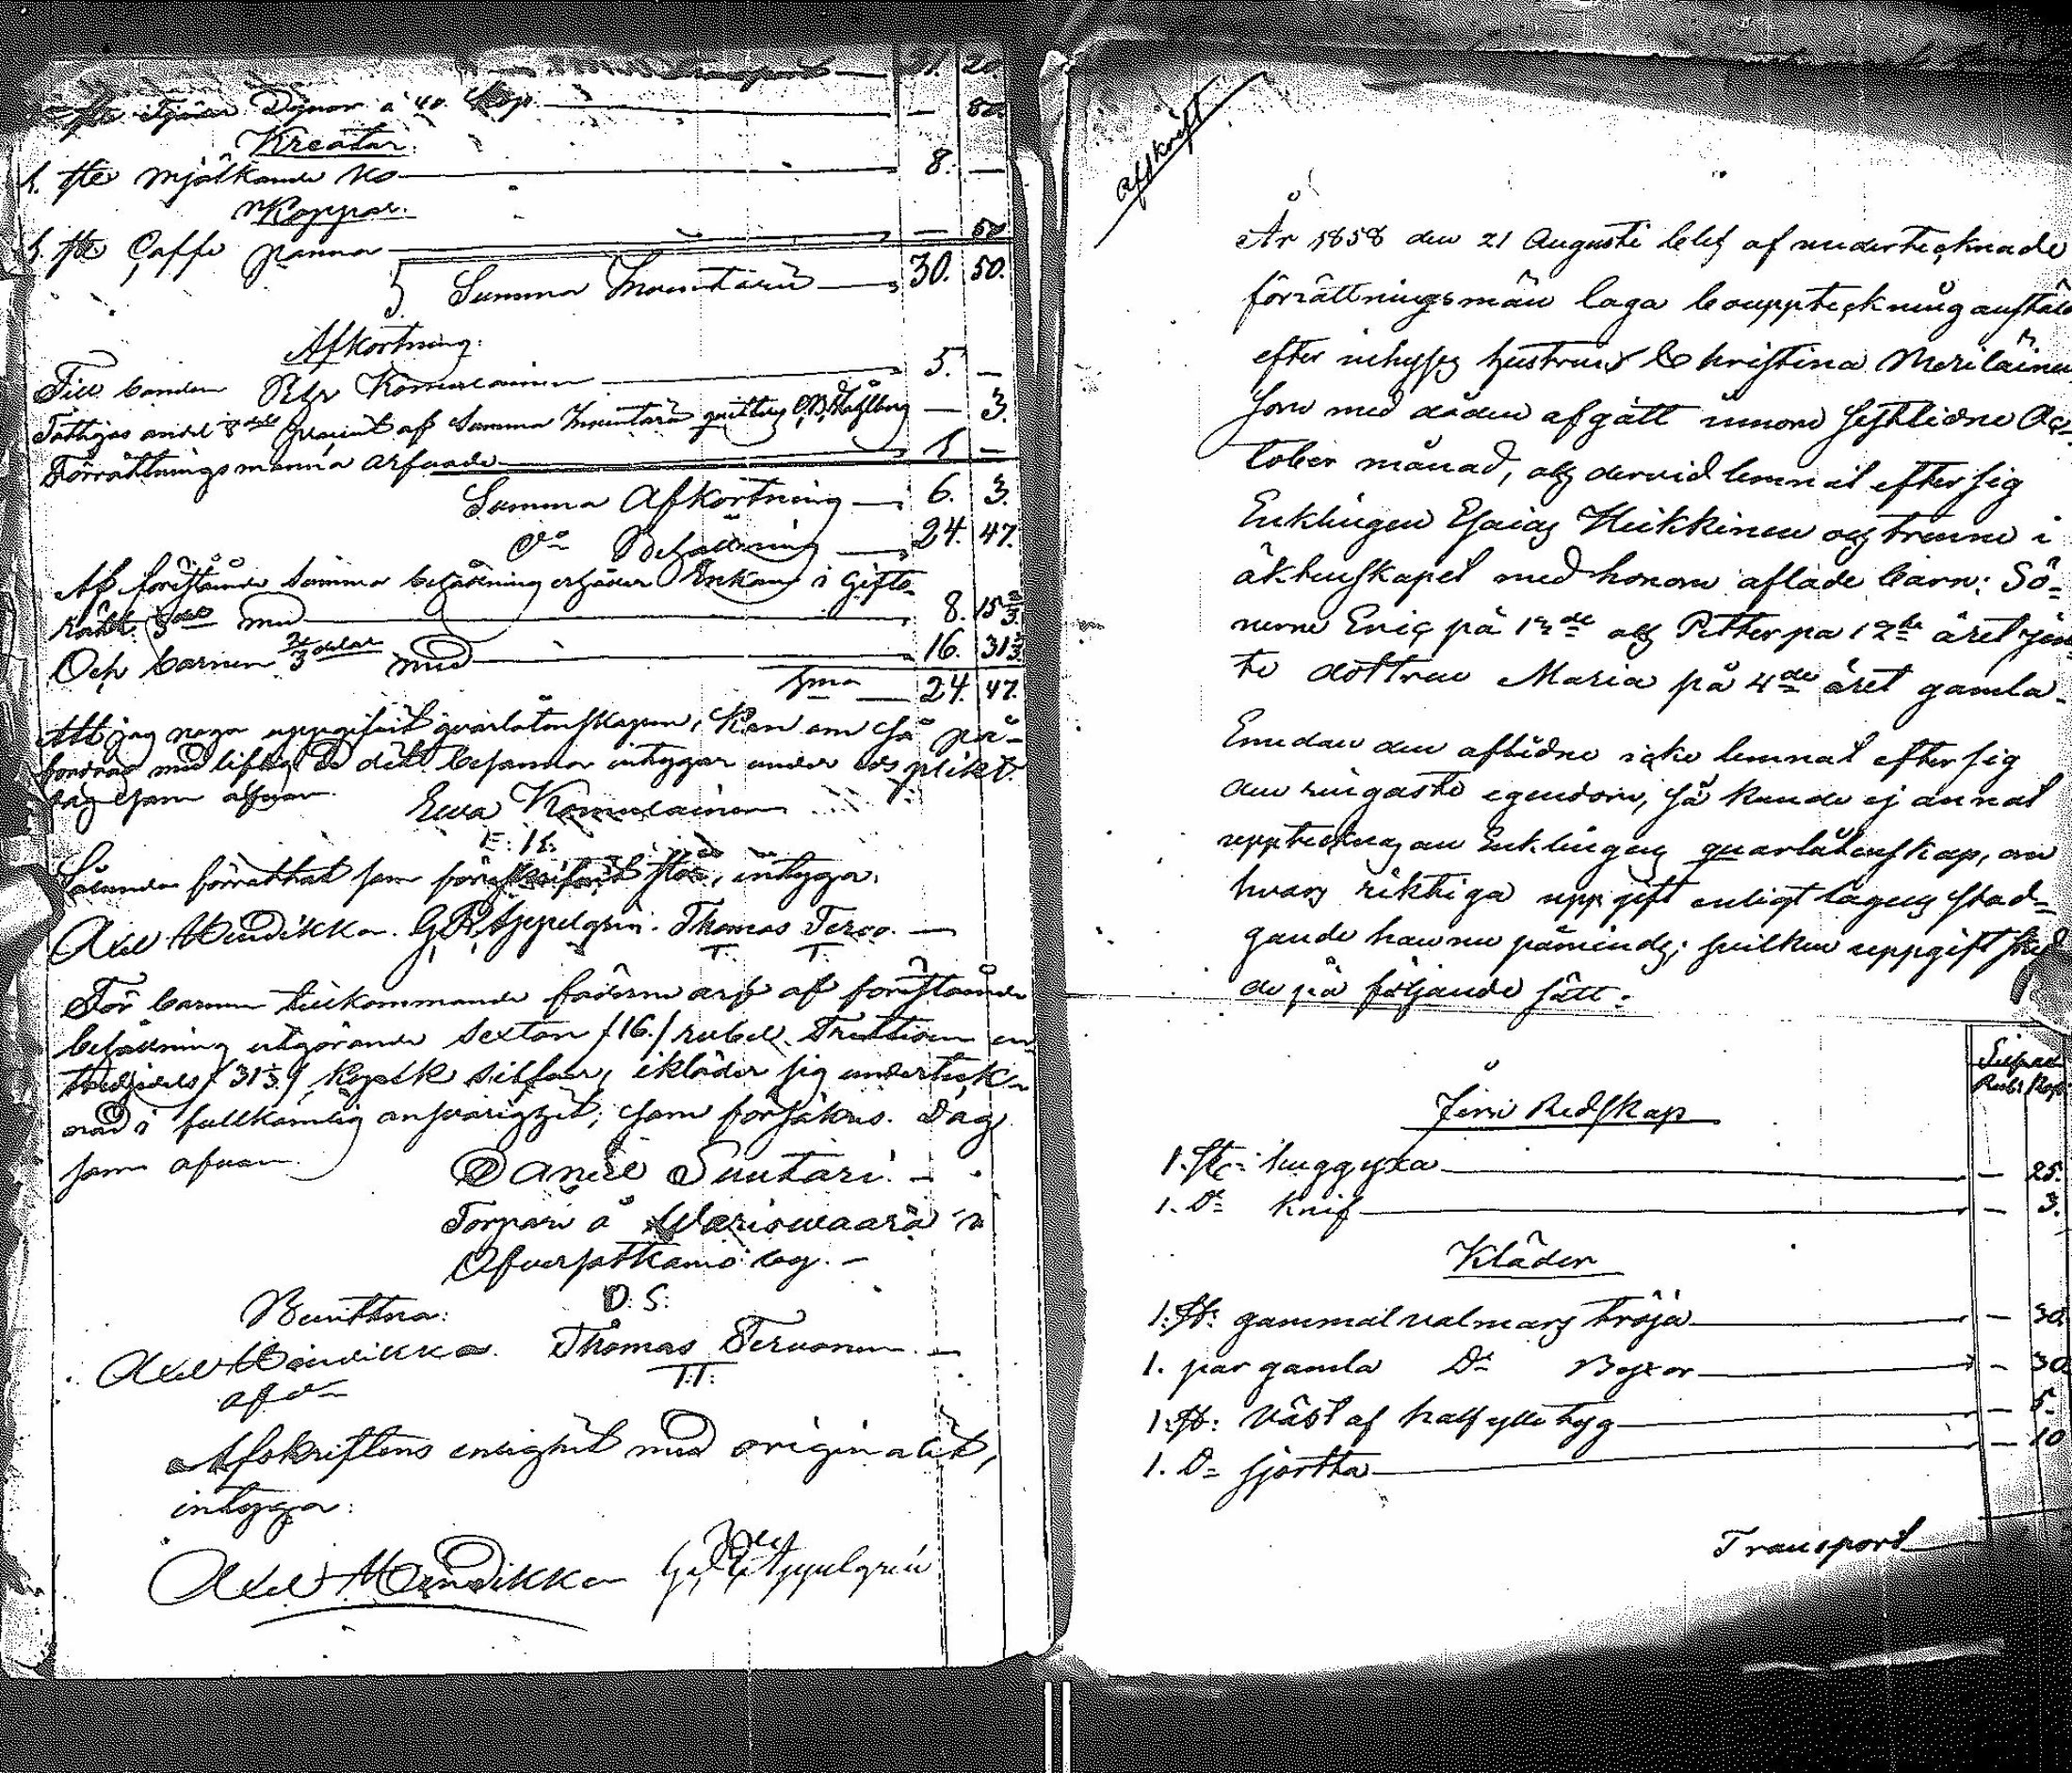 Transport — 21. 20.
Dynor a 40. Kop — 80.
Kreatur.
1. ste mjölkande ko — 8. —
Koppar.
1. ste Caffe panna — 50
Summa Inventarii — 30. 50.
Afkortning:
Till bonden Petr Komulainen — 5. —
Fattigas andel 8 dels procent af Summa Inventarii — 3.
Förrättningsmanna arfvode — 1 —
Summa Afkortning — 6. 3.
Behållning — 24. 47.
Af förestående Summa behållning erhåller Enkan i Gifto-
rätt 3 dels med — 8. 15 2/3.
Och barnen 2/3 delar med — 16. 31 1/3.
Sma — 24. 47.
Att jag noga uppgifvit qvarlåtenskapen, kan om så på-
fordras med liflig Ed det besanna intygar under Eds plikt.
Dag som ofvan.
Ewa Komulainen
E: K:
Sålunda förrättat som föreskrifvit står, intyga:
Axel Mendikka. G. R. Appelgrin. Thomas Tervo. —
T: T:
För barnen tillkommande fäderne arf af förestående
behållning utgörande Sexton /16./ rubel Trettioen en
tredjedels /31 1/3/ Kopek Silfver, ikläder sig underteck-
nad i fullkomlig ansvarighet, som försäkras. Dag
som ofvan.
Daniel Suutari. —
Torpari å Wariswaara i
Öfversotkamo by. —
D: S:
Bevittna:
Axel Mendikka. Thomas Tervonen. —
T: T:
Afskriftens enlighet med originalet,
intyga:
Axel Mendikka G. R. Appelgrin
Afskrift
År 1858 den 21 Augusti blef af undertecknade
förrättningsmän laga bouppteckning anstäld
efter inhyses hustrun Christina Meriläinen
som med döden afgått innom sistlidne Oc-
tober månad, och dervid lemnat efter sig
Enklingen Esaias Heikkinen och trenne i
äktenskapet med honom aflade barn: Sö-
nerne Eric på 13de och Petter på 12te året jem
te dottren Maria på 4de året gamla.
Emedan den aflidne icke lemnat efter sig
den ringaste egendom, så kunde ej annat
upptecknas än Enklingens quarlåtenskap, om
hvars riktiga uppgift enligt lagens stad-
gande han nu påmindes; hvilken uppgift sked
de på följande sätt:
Silfver
Rub: Kop
Jern Redskap
1. St: huggyxa — 25.
1. D: knif — 3.
Kläder
1. St: gammal valmars tröja — 30.
1. par gamla D: Boxor — 30.
1. St: Väst af half ylle tyg — 5.
1. D: skjorta — 10
Transport